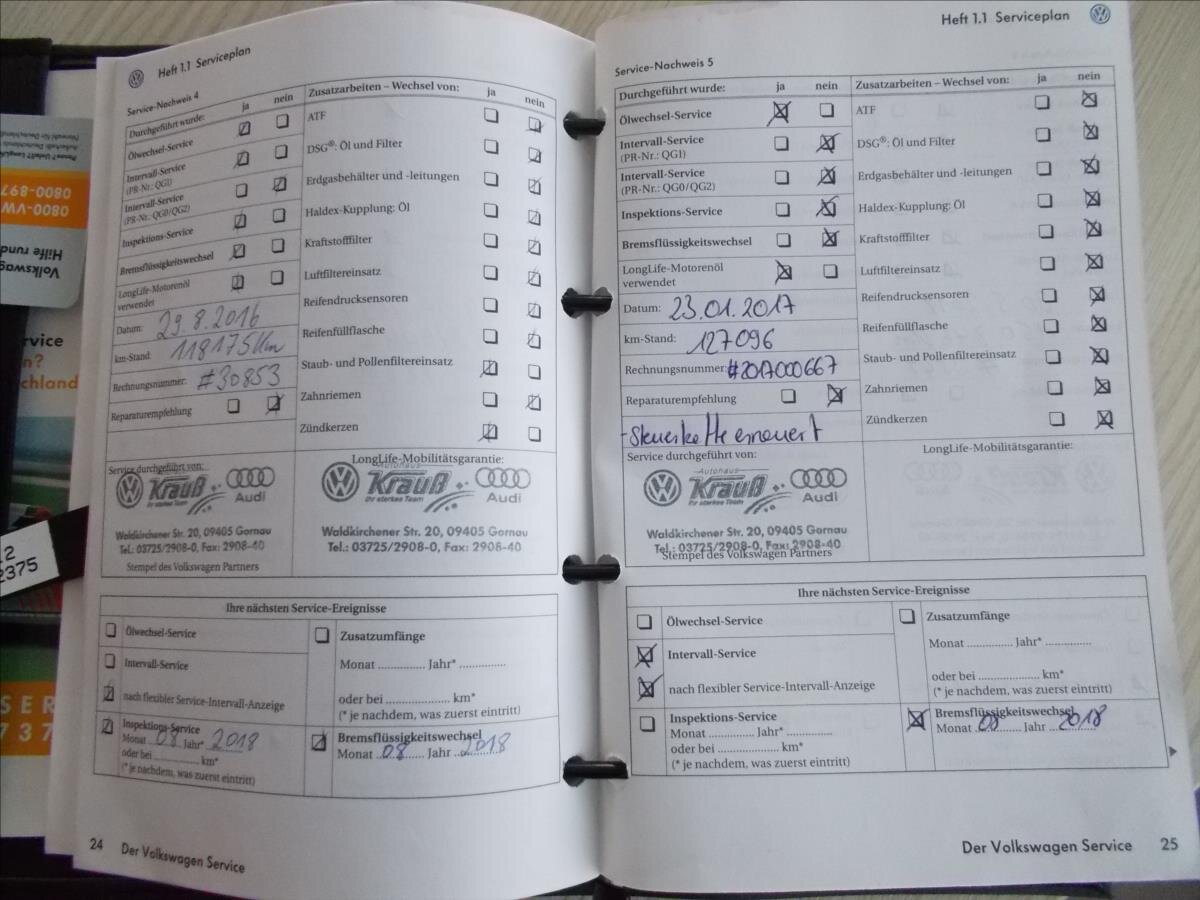 Heft 1.1 Serviceplan
Service-Nachweis 4
Durchgeführt wurde: ja nein
Ölwechsel-Service
Intervall-Service
(PR-Nr.: QG1)
Intervall-Service
(PR-Nr.: QG0/QG2)
Inspektions-Service
Bremsflüssigkeitswechsel
LongLife-Motorenöl
verwendet
Datum: 29.8.2016
km-Stand: 118175 Km
Rechnungsnummer: #30853
Reparaturempfehlung
Zusatzarbeiten – Wechsel von: ja nein
ATF
DSG®: Öl und Filter
Erdgasbehälter und -leitungen
Haldex-Kupplung: Öl
Kraftstofffilter
Luftfiltereinsatz
Reifendrucksensoren
Reifenfüllflasche
Staub- und Pollenfiltereinsatz
Zahnriemen
Zündkerzen
Service durchgeführt von:
Krauß
Ihr starkes Team
Audi
Waldkirchener Str. 20, 09405 Gornau
Tel.: 03725/2908-0, Fax: 2908-40
Stempel des Volkswagen Partners
LongLife-Mobilitätsgarantie:
Krauß
Ihr starkes Team
Audi
Waldkirchener Str. 20, 09405 Gornau
Tel.: 03725/2908-0, Fax: 2908-40
Ihre nächsten Service-Ereignisse
Ölwechsel-Service
Intervall-Service
nach flexibler Service-Intervall-Anzeige
Inspektions-Service
Monat 08 Jahr* 2018
oder bei .................... km*
(* je nachdem, was zuerst eintritt)
Zusatzumfänge
Monat ............. Jahr* .............
oder bei .................... km*
(* je nachdem, was zuerst eintritt)
Bremsflüssigkeitswechsel
Monat 08 Jahr 2018
24 Der Volkswagen Service
Heft 1.1 Serviceplan
Service-Nachweis 5
Durchgeführt wurde: ja nein
Ölwechsel-Service
Intervall-Service
(PR-Nr.: QG1)
Intervall-Service
(PR-Nr.: QG0/QG2)
Inspektions-Service
Bremsflüssigkeitswechsel
LongLife-Motorenöl
verwendet
Datum: 23.01.2017
km-Stand: 127096
Rechnungsnummer: #20A000667
Reparaturempfehlung
- Steuerkette erneuert
Zusatzarbeiten – Wechsel von: ja nein
ATF
DSG®: Öl und Filter
Erdgasbehälter und -leitungen
Haldex-Kupplung: Öl
Kraftstofffilter
Luftfiltereinsatz
Reifendrucksensoren
Reifenfüllflasche
Staub- und Pollenfiltereinsatz
Zahnriemen
Zündkerzen
Service durchgeführt von:
Autohaus
Krauß
Ihr starkes Team
Audi
Waldkirchener Str. 20, 09405 Gornau
Tel.: 03725/2908-0, Fax: 2908-40
Stempel des Volkswagen Partners
LongLife-Mobilitätsgarantie:
Ihre nächsten Service-Ereignisse
Ölwechsel-Service
Intervall-Service
nach flexibler Service-Intervall-Anzeige
Inspektions-Service
Monat ............. Jahr* .............
oder bei .................... km*
(* je nachdem, was zuerst eintritt)
Zusatzumfänge
Monat ............. Jahr* .............
oder bei .................... km*
(* je nachdem, was zuerst eintritt)
Bremsflüssigkeitswechsel
Monat 08 Jahr 2018
Der Volkswagen Service 25
0800-897
0800-VW
Hilfe rund
Volkswagen
rvice
n?
chland
2
2375
SER
737